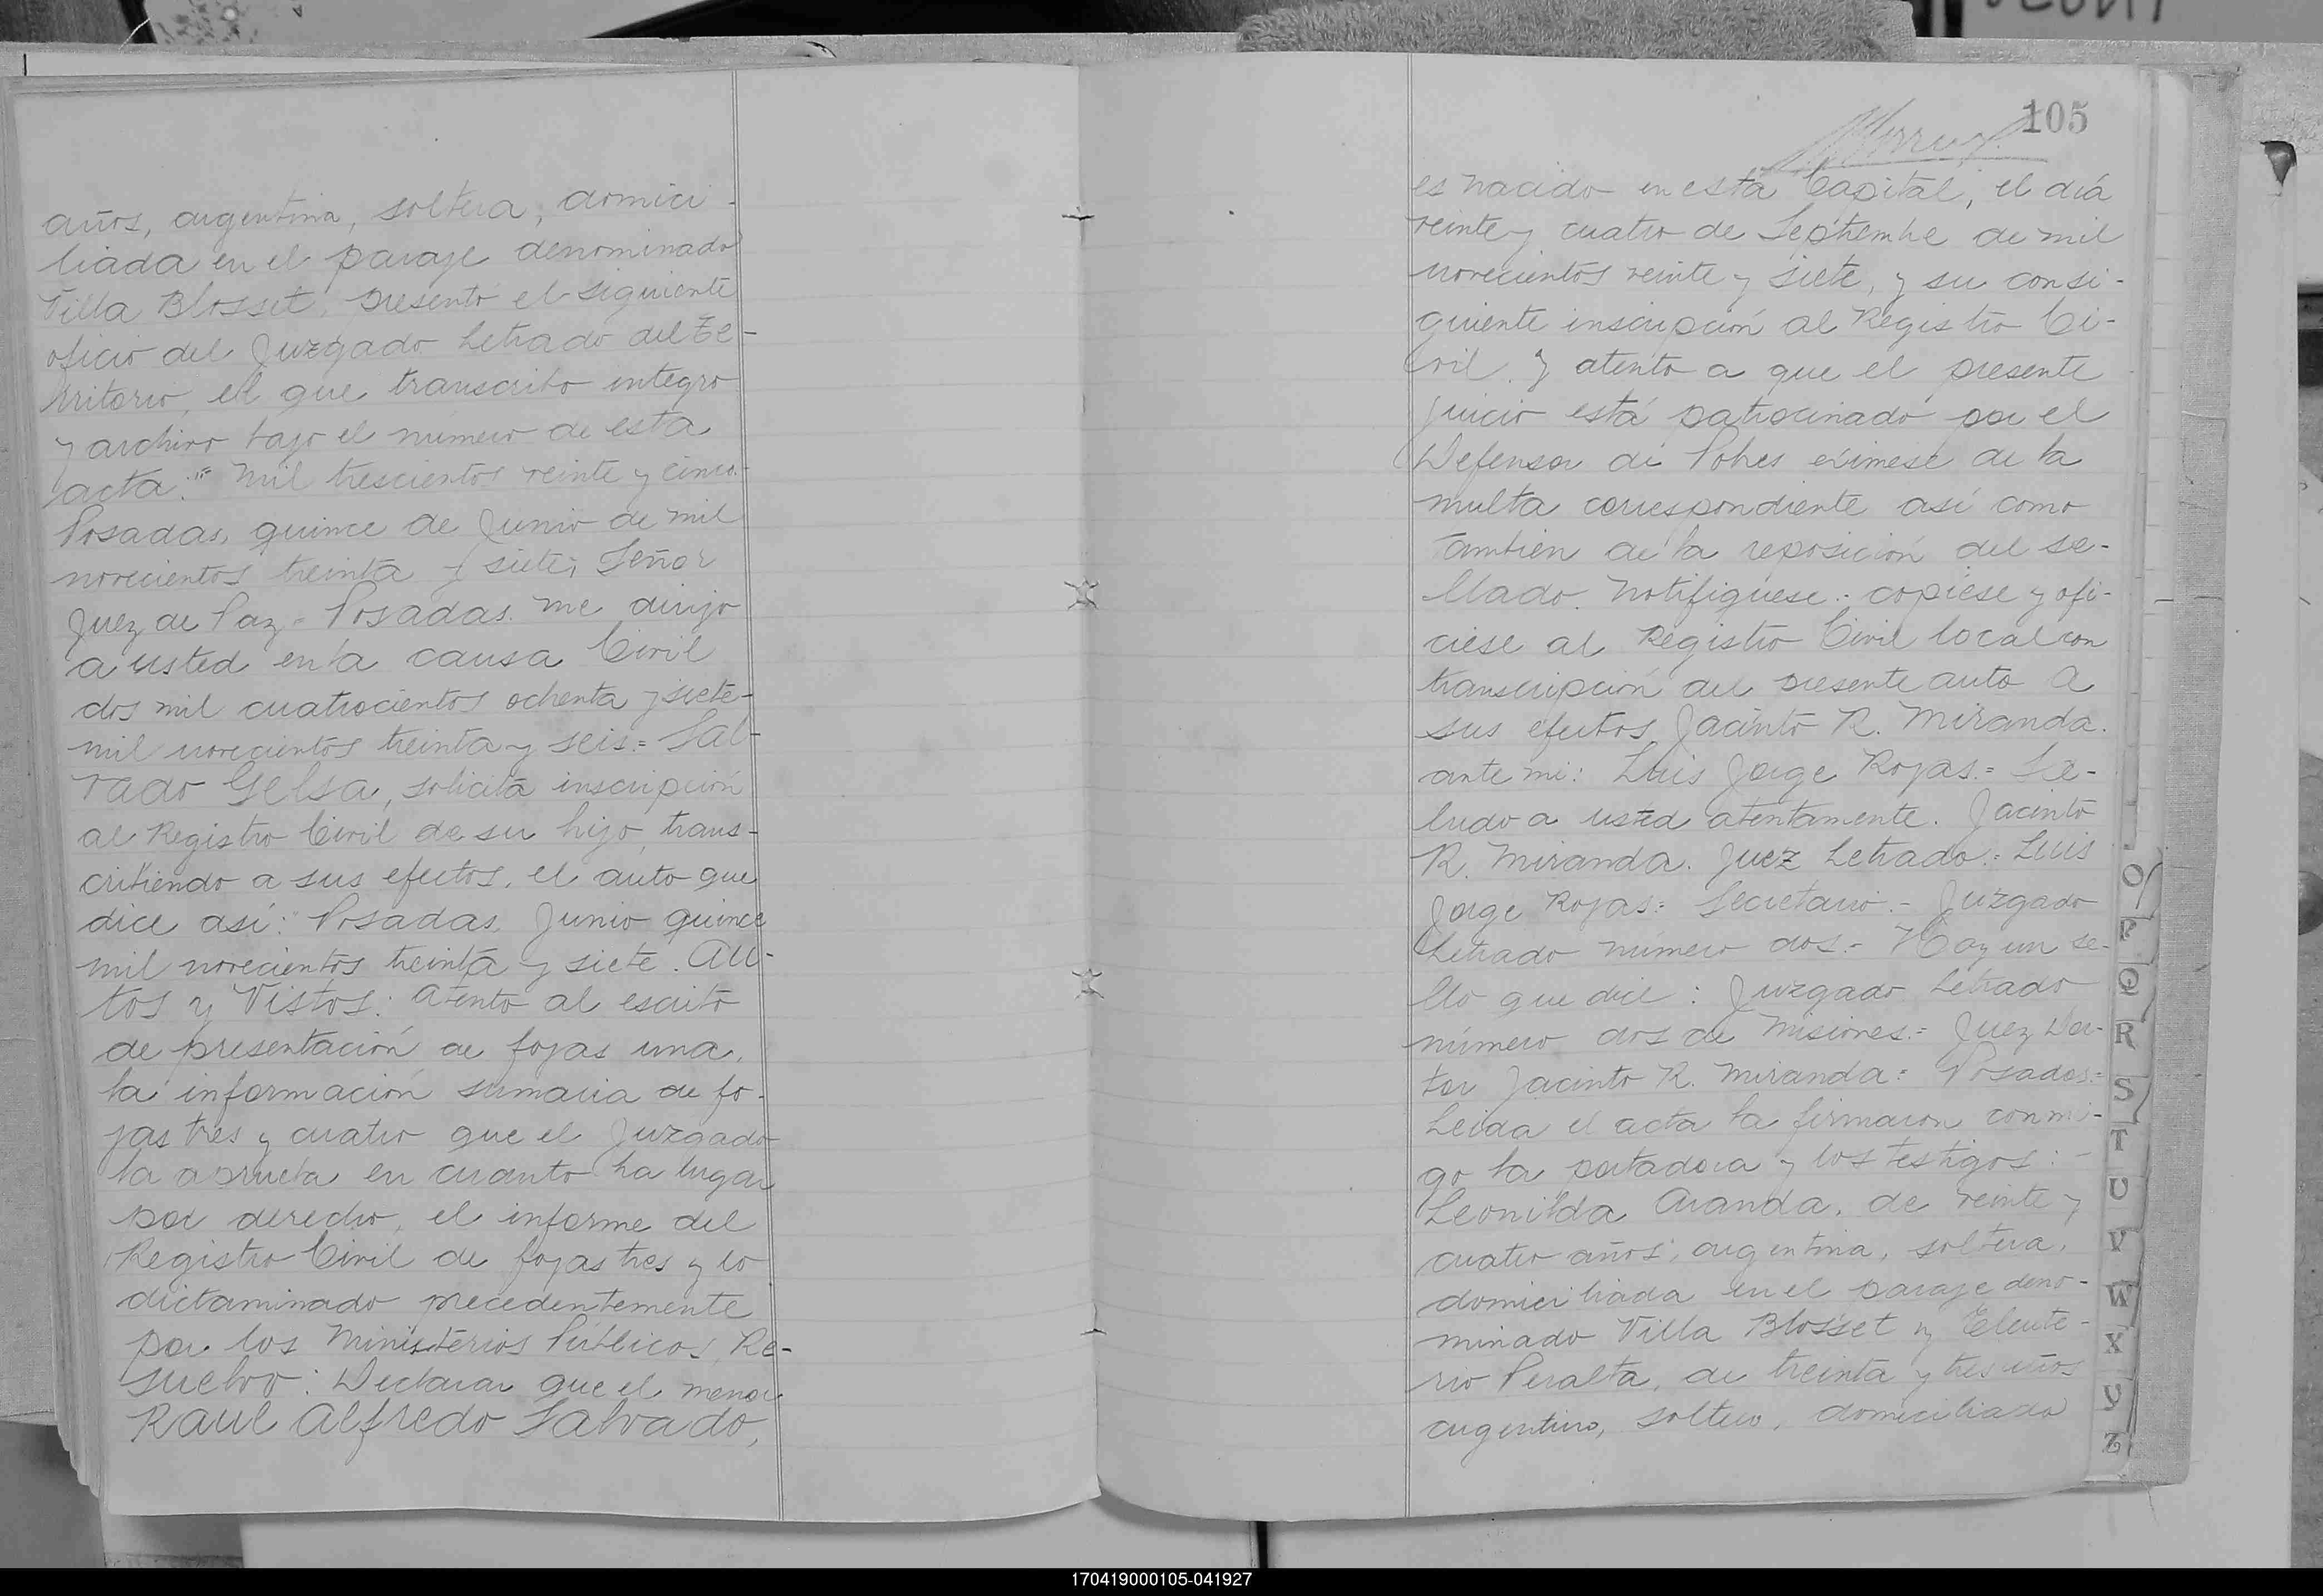 años, argentina, soltera, domici-
liada en el paraje denominado
Villa Blosset, presentó el siguiente
oficio del Juzgado Letrado del Te-
rritorio, el que transcribo integro
y archivo bajo el número de esta
acta: " Mil trescientos veinte y cinco.-
Posadas, quince de Junio de mil
novecientos treinta y siete; Señor
Juez de Paz = Posadas. Me dirijo
a usted en la causa Civil
dos mil cuatrocientos ochenta y siete-
mil novecientos treinta y seis.= Sal-
vado Gelsa, solicita inscripción
al Registro Civil de su hijo, trans-
cribiendo a sus efectos, el auto que
dice así: Posadas, Junio quince
mil novecientos treinta y siete. Au-
tos y Vistos: Atento al escrito
de presentación de fojas una,
la información sumaria de fo-
jas tres y cuatro que el Juzgado
la aprueba en cuanto ha lugar
por derecho, el informe del
Registro Civil de fojas tres y lo
dictaminado precedentemente
por los Ministerios Públicos, Re-
suelvo: Declarar que el menor
Raul Alfredo Salvado,
105
es nacido en esta Capital, el día
veinte y cuatro de Septiembre de mil
novecientos veinte y siete, y su consi-
guiente inscripción al Registro Ci-
vil. Y atento a que el presente
juicio está patrocinado por el
Defensor de Pobres exímese de la
multa correspondiente así como
tambien de la reposición del se-
llado. Notifiquese.- copiese y ofi-
ciese al Registro Civil local con
transcripción del presente auto a
sus efectos. Jacinto R. Miranda.
ante mi: Luis Jorge Rojas.= Sa-
ludo a usted atentamente. Jacinto
R. Miranda. Juez Letrado.= Luis
Jorge Rojas= Secretario.- Juzgado
Letrado número dos.- Hay un se-
llo que dice: Juzgado Letrado
número dos de Misiones.= Juez Doc-
tor Jacinto R. Miranda= Posadas.=
Leida el acta la firmaron conmi-
go la portadora y los testigos:-
Leonilda Aranda, de veinte y
cuatro años, argentina, soltera,
domiciliada en el paraje deno-
minado Villa Blosset y Eleute-
rio Peralta, de treinta y tres años
argentino, soltero, domiciliado
O
P
Q
R
S
T
U
V
W
X
Y
Z
170419000105-041927